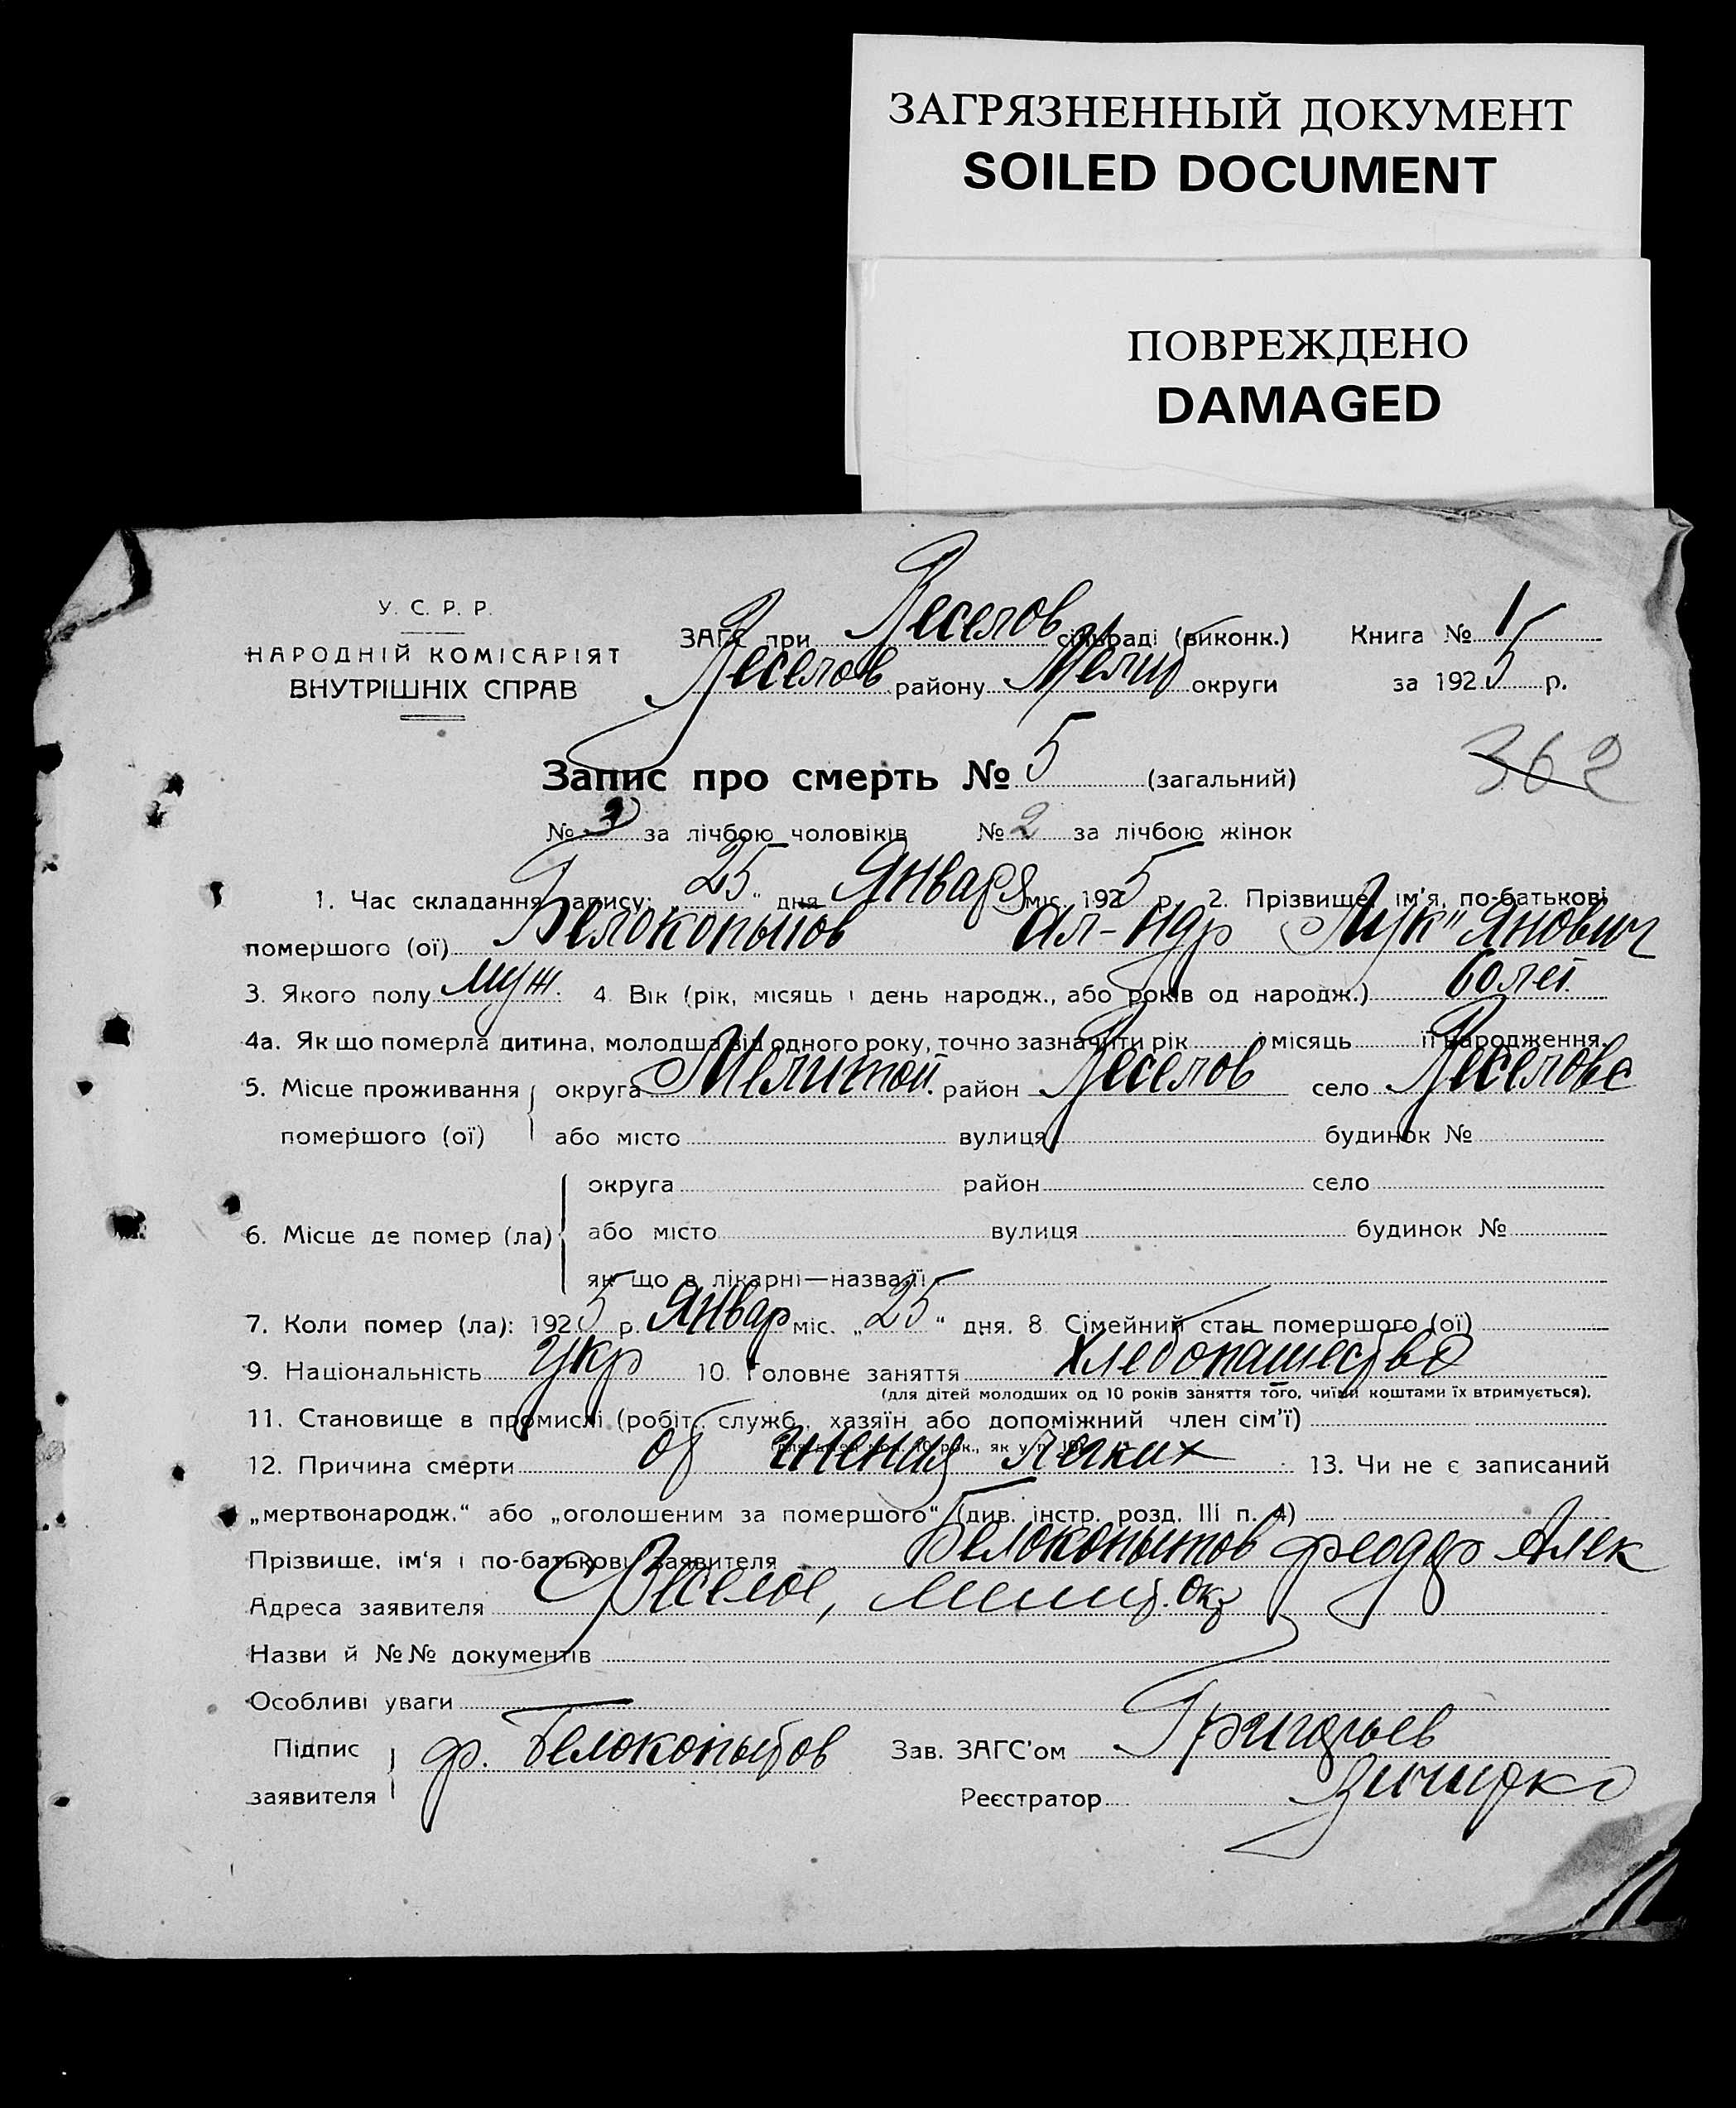 ЗАГРЯЗНЕННЫЙ ДОКУМЕНТ
SOILED DOCUMENT
ПОВРЕЖДЕНО
DAMAGED
У. С. Р. Р.
НАРОДНІЙ КОМІСАРІЯТ
ВНУТРІШНІХ СПРАВ
ЗАГС при Веселов сільраді (виконк.) Книга № 1
Веселов району Мелит округи за 1925 р.
362
Запис про смерть № 5 (загальний)
№ 3 за лічбою чоловіків № 2 за лічбою жінок
1. Час складання запису: „25“ дня Января міс. 1925 р. 2. Прізвище, ім'я, по-батькові
помершого (ої) Белокопытов Ал-ндр Лукиянович
3. Якого полу муж. 4. Вік (рік, місяць і день народж., або років од народж.) 60 лет
4а. Як що померла дитина, молодша від одного року, точно зазначити рік і місяць її народження.
5. Місце проживання округа Мелитоп. район Веселов село Веселове
помершого (ої) або місто вулиця будинок №
округа район село
6. Місце де помер (ла) або місто вулиця будинок №
як що в лікарні—назва її
7. Коли помер (ла): 1925 р. Январ міс. „25“ дня. 8. Сімейний стан помершого (ої)
9. Національність Укр 10. Головне заняття Хлебопашество
(для дітей молодших од 10 років заняття того, чиїми коштами їх втримується).
11. Становище в промислі (робіт., служб., хазяїн або допоміжний член сім'ї)
12. Причина смерти от гнения легких 13. Чи не є записаний
„мертвонародж.“ або „оголошеним за помершого“ (див. інстр. розд. III п. 4)
Прізвище, ім'я і по-батькові заявителя Белокопытов Феодор Алек
Адреса заявителя С Веселое, Мелит. окр
Назви й №№ документів
Особливі уваги
Підпис заявителя Ф. Белокопытов Зав. ЗАГС'ом Григорьев
Реєстратор